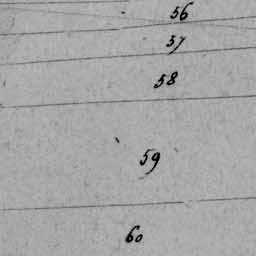 56
57
58
59
60